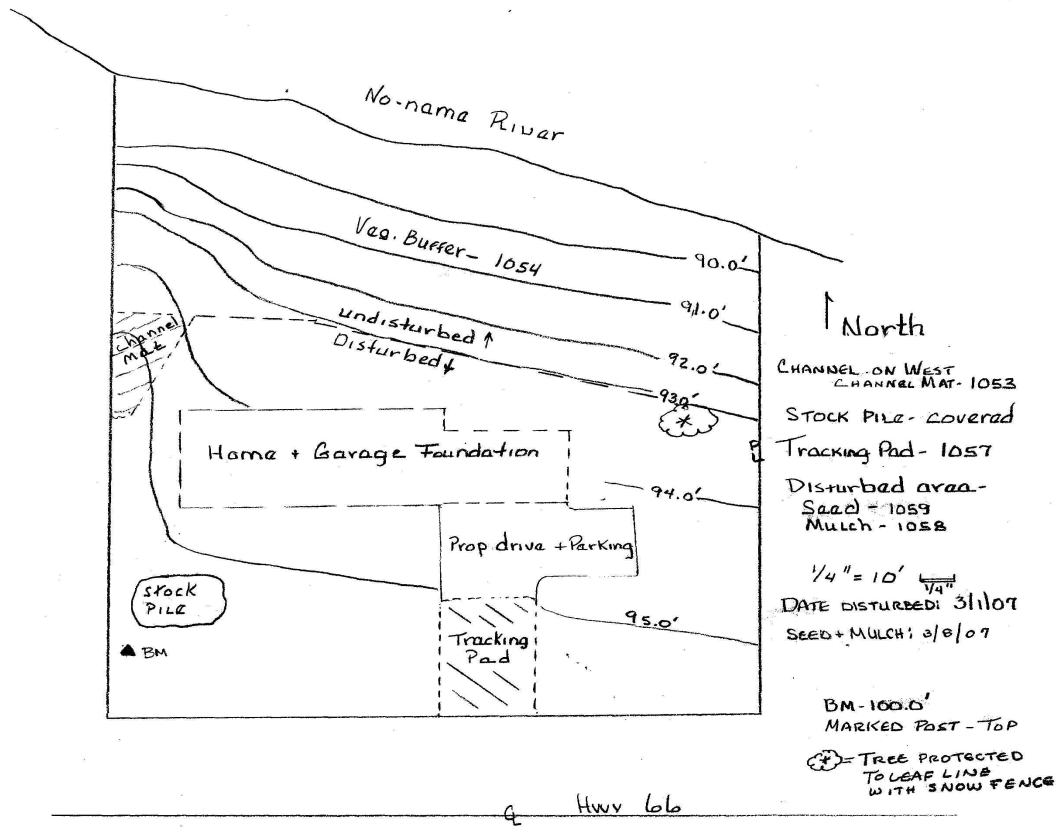 No-name River
Veg. Buffer - 1054
90.0'
91.0'
92.0'
93.0'
undisturbed ↑
Disturbed ↓
Channel
Mat
Home + Garage Foundation
94.0'
Prop drive + Parking
Stock
Pile
▲ BM
Tracking
Pad
95.0'
↑ North
CHANNEL ON WEST
CHANNEL MAT - 1053
STOCK PILE - covered
PL
Tracking Pad - 1057
Disturbed area -
Seed - 1059
Mulch - 1058
1/4" = 10'
1/4"
DATE DISTURBED: 3/1/07
SEED + MULCH: 3/8/07
BM - 100.0'
MARKED POST - TOP
= TREE PROTECTED
TO LEAF LINE
WITH SNOW FENCE
CL Hwy 66